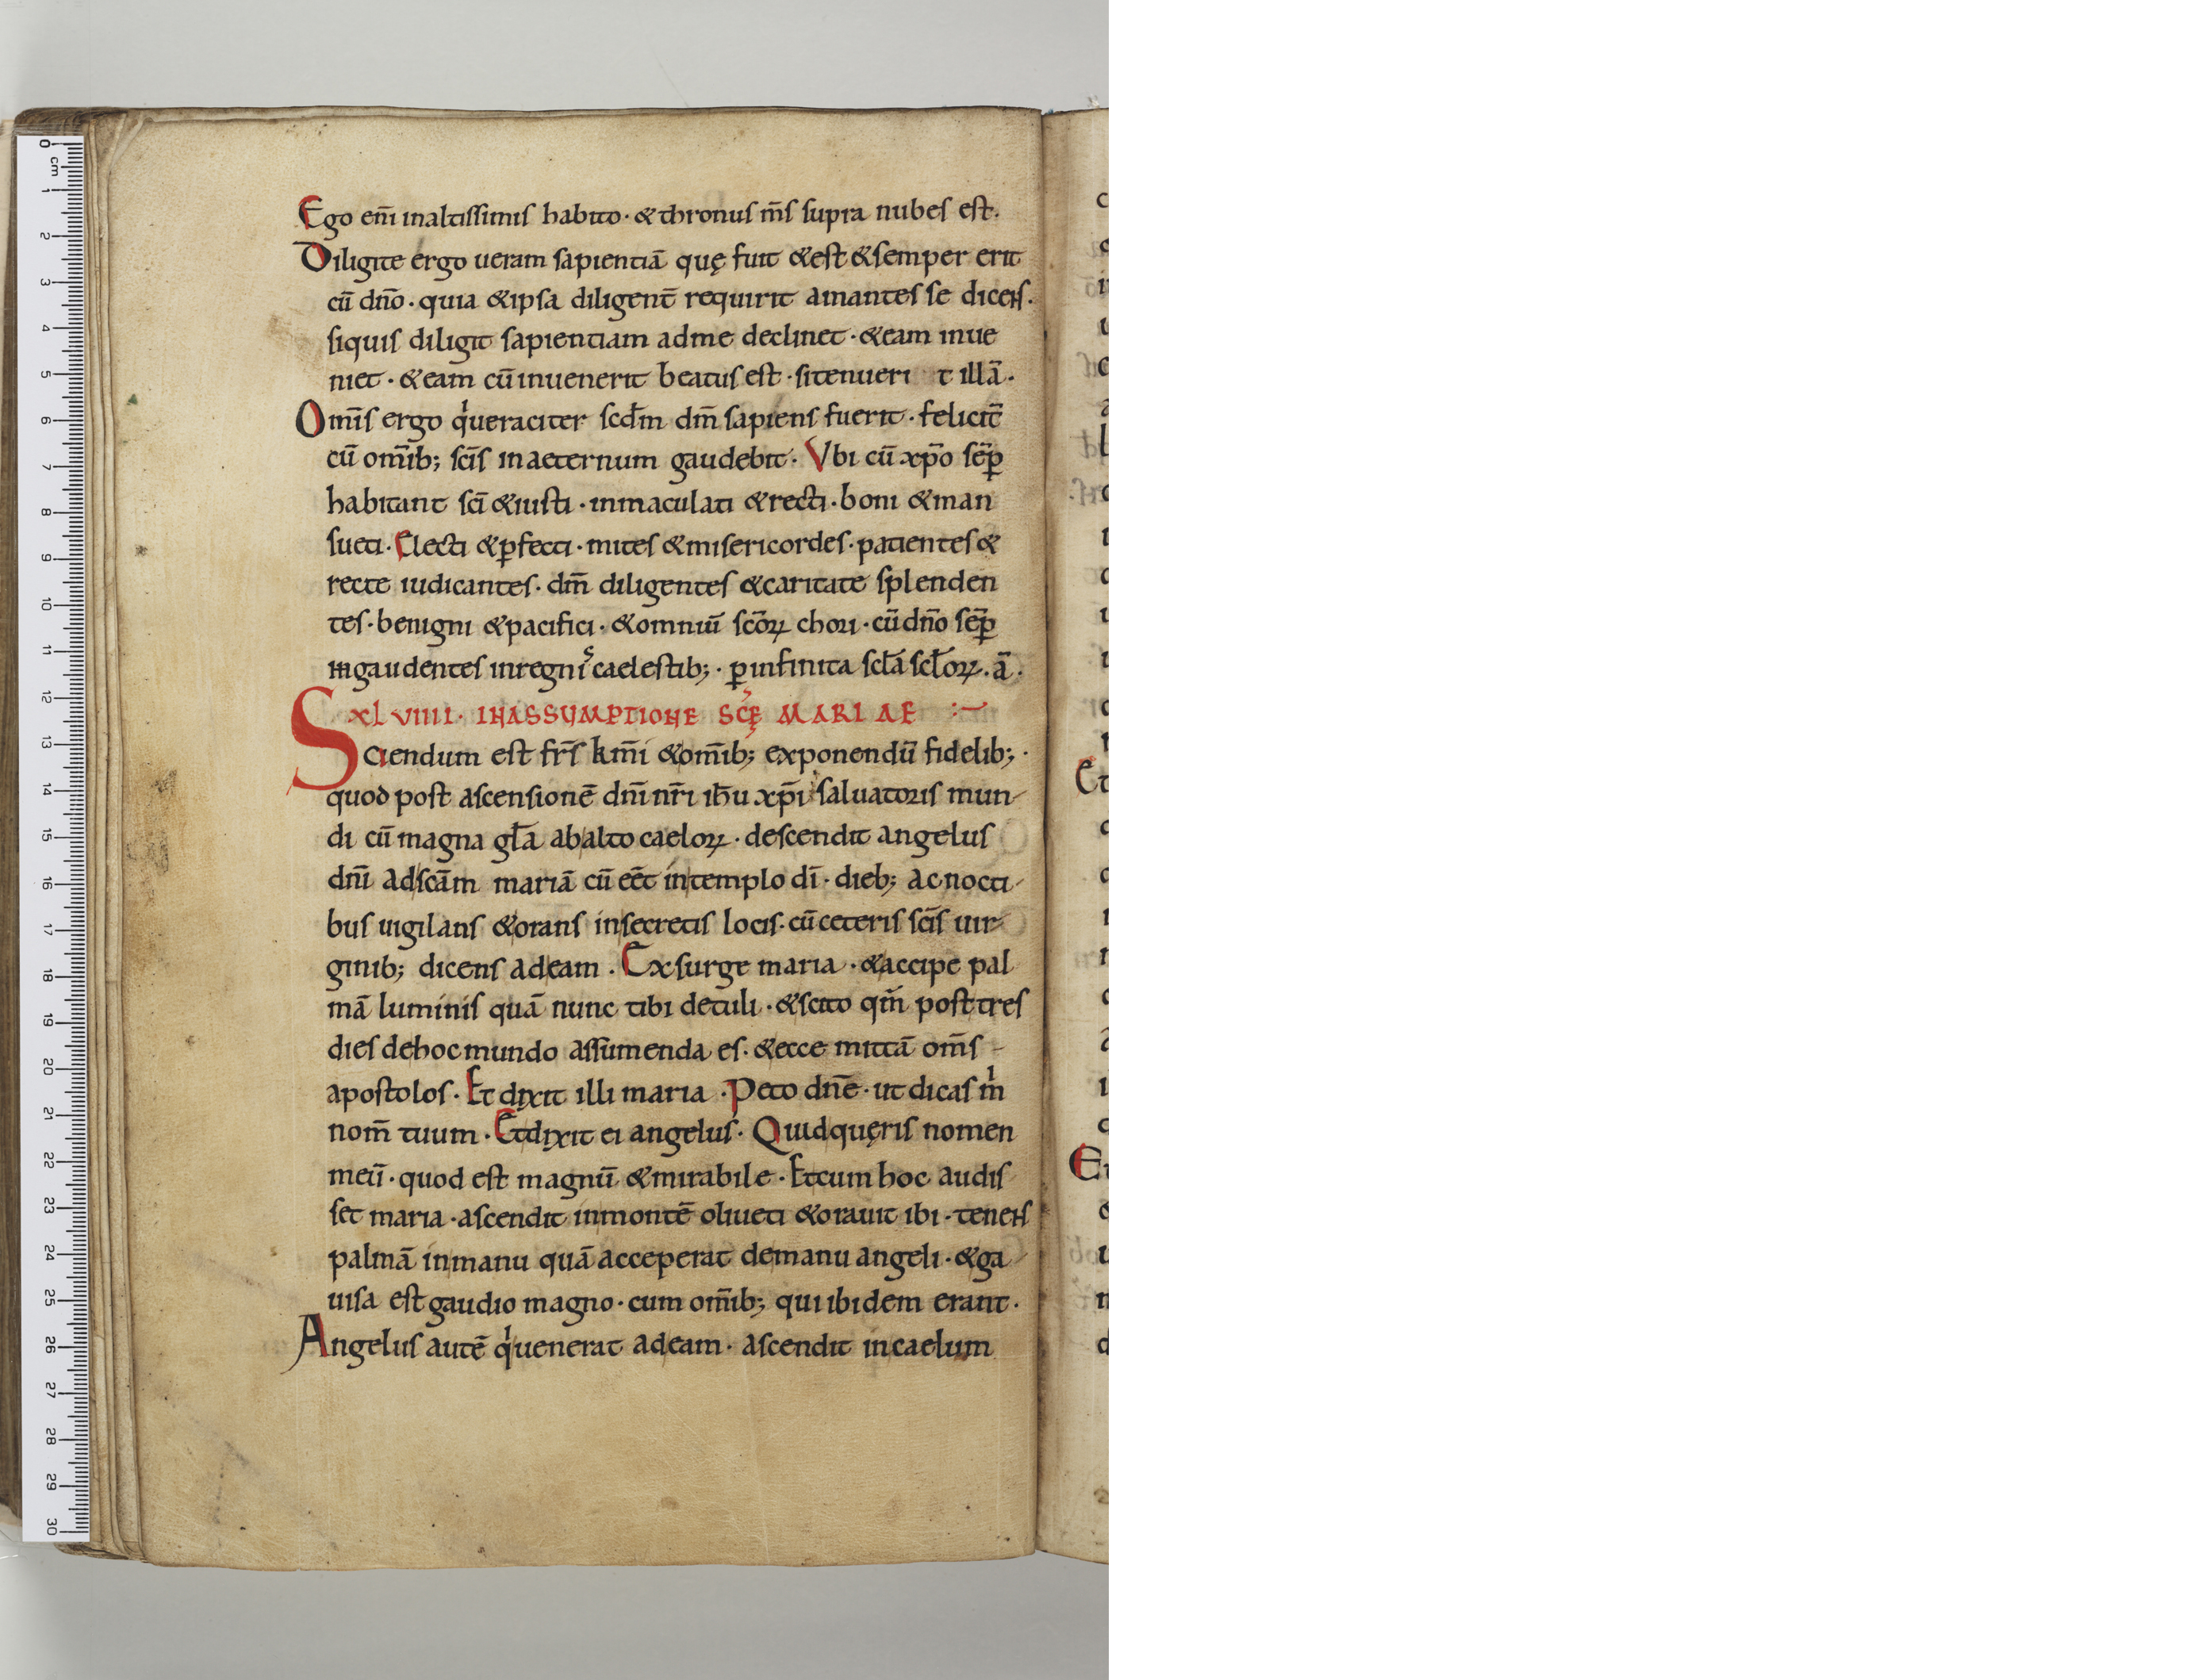 Ego em̄ inaltissimis habito · & thronus m̄s supra nubes est.
Diligite ergo ueram sapientiā quę fuit & est & semper erit
cū dn̄o · quia & ipsa diligent̄ requirit amantes se dicens.
siquis diligit sapientiam adme declinet · & eam inue
niet · & eam cū inuenerit beatus est · si tenueri t illā.
Om̄is ergo qͥ ueraciter scd̄m dm̄ sapiens fuerit · felicit̄
cū om̄ib; sc̄is in aeternum gaudebit. Vbi cū xp̄o sēp̄
habitant sc̄i & iusti · inmaculati & recti · boni & man
sueti. Electi & ꝑfecti · mites & misericordes · patientes &
recte iudicantes · dm̄ diligentes & caritate splenden
tes · benigni & pacifici · & omniū sc̄oꝝ chori · cū dn̄o sēp̄
ingaudentes inregniˢ caelestib; · ꝑ infinita scl̄a scl̄oꝝ. ā.
XLVIIII · IN ASSUMPTIONE SC̄Ę MARIAE :~
Sciendum est fr̄s km̄i & om̄ib; exponendū fidelib; ·
quod post ascensionē dn̄i nr̄i ih̄u xp̄i saluatoris mun-
di cū magna gl̄a abalto caeloꝝ · descendit angelus
dn̄i ad sc̄am mariā cū eēt in templo dī · dieb; ac nocti-
bus uigilans & orans insecretis locis · cū ceteris sc̄is uir-
ginib; dicens adeam. Exsurge maria · & accipe pal
mā luminis quā nunc tibi detuli · & scito qm̄ post tres
dies dehoc mundo assumenda es · & ecce mittā om̄s -
apostolos. Et dixit illi maria. Peto dn̄e · ut dicas mͥ
nom̄ tuum. Et dixit ei angelus. Quid quęris nomen
meū · quod est magnū & mirabile. Et cum hoc audis
set maria · ascendit inmontē oliueti & orauit ibi · tenens
palmā inmanu quā acceperat demanu angeli · & ga
uisa est gaudio magno · cum om̄ib; qui ibidem erant.
Angelus autē qͥ uenerat adeam · ascendit in caelum